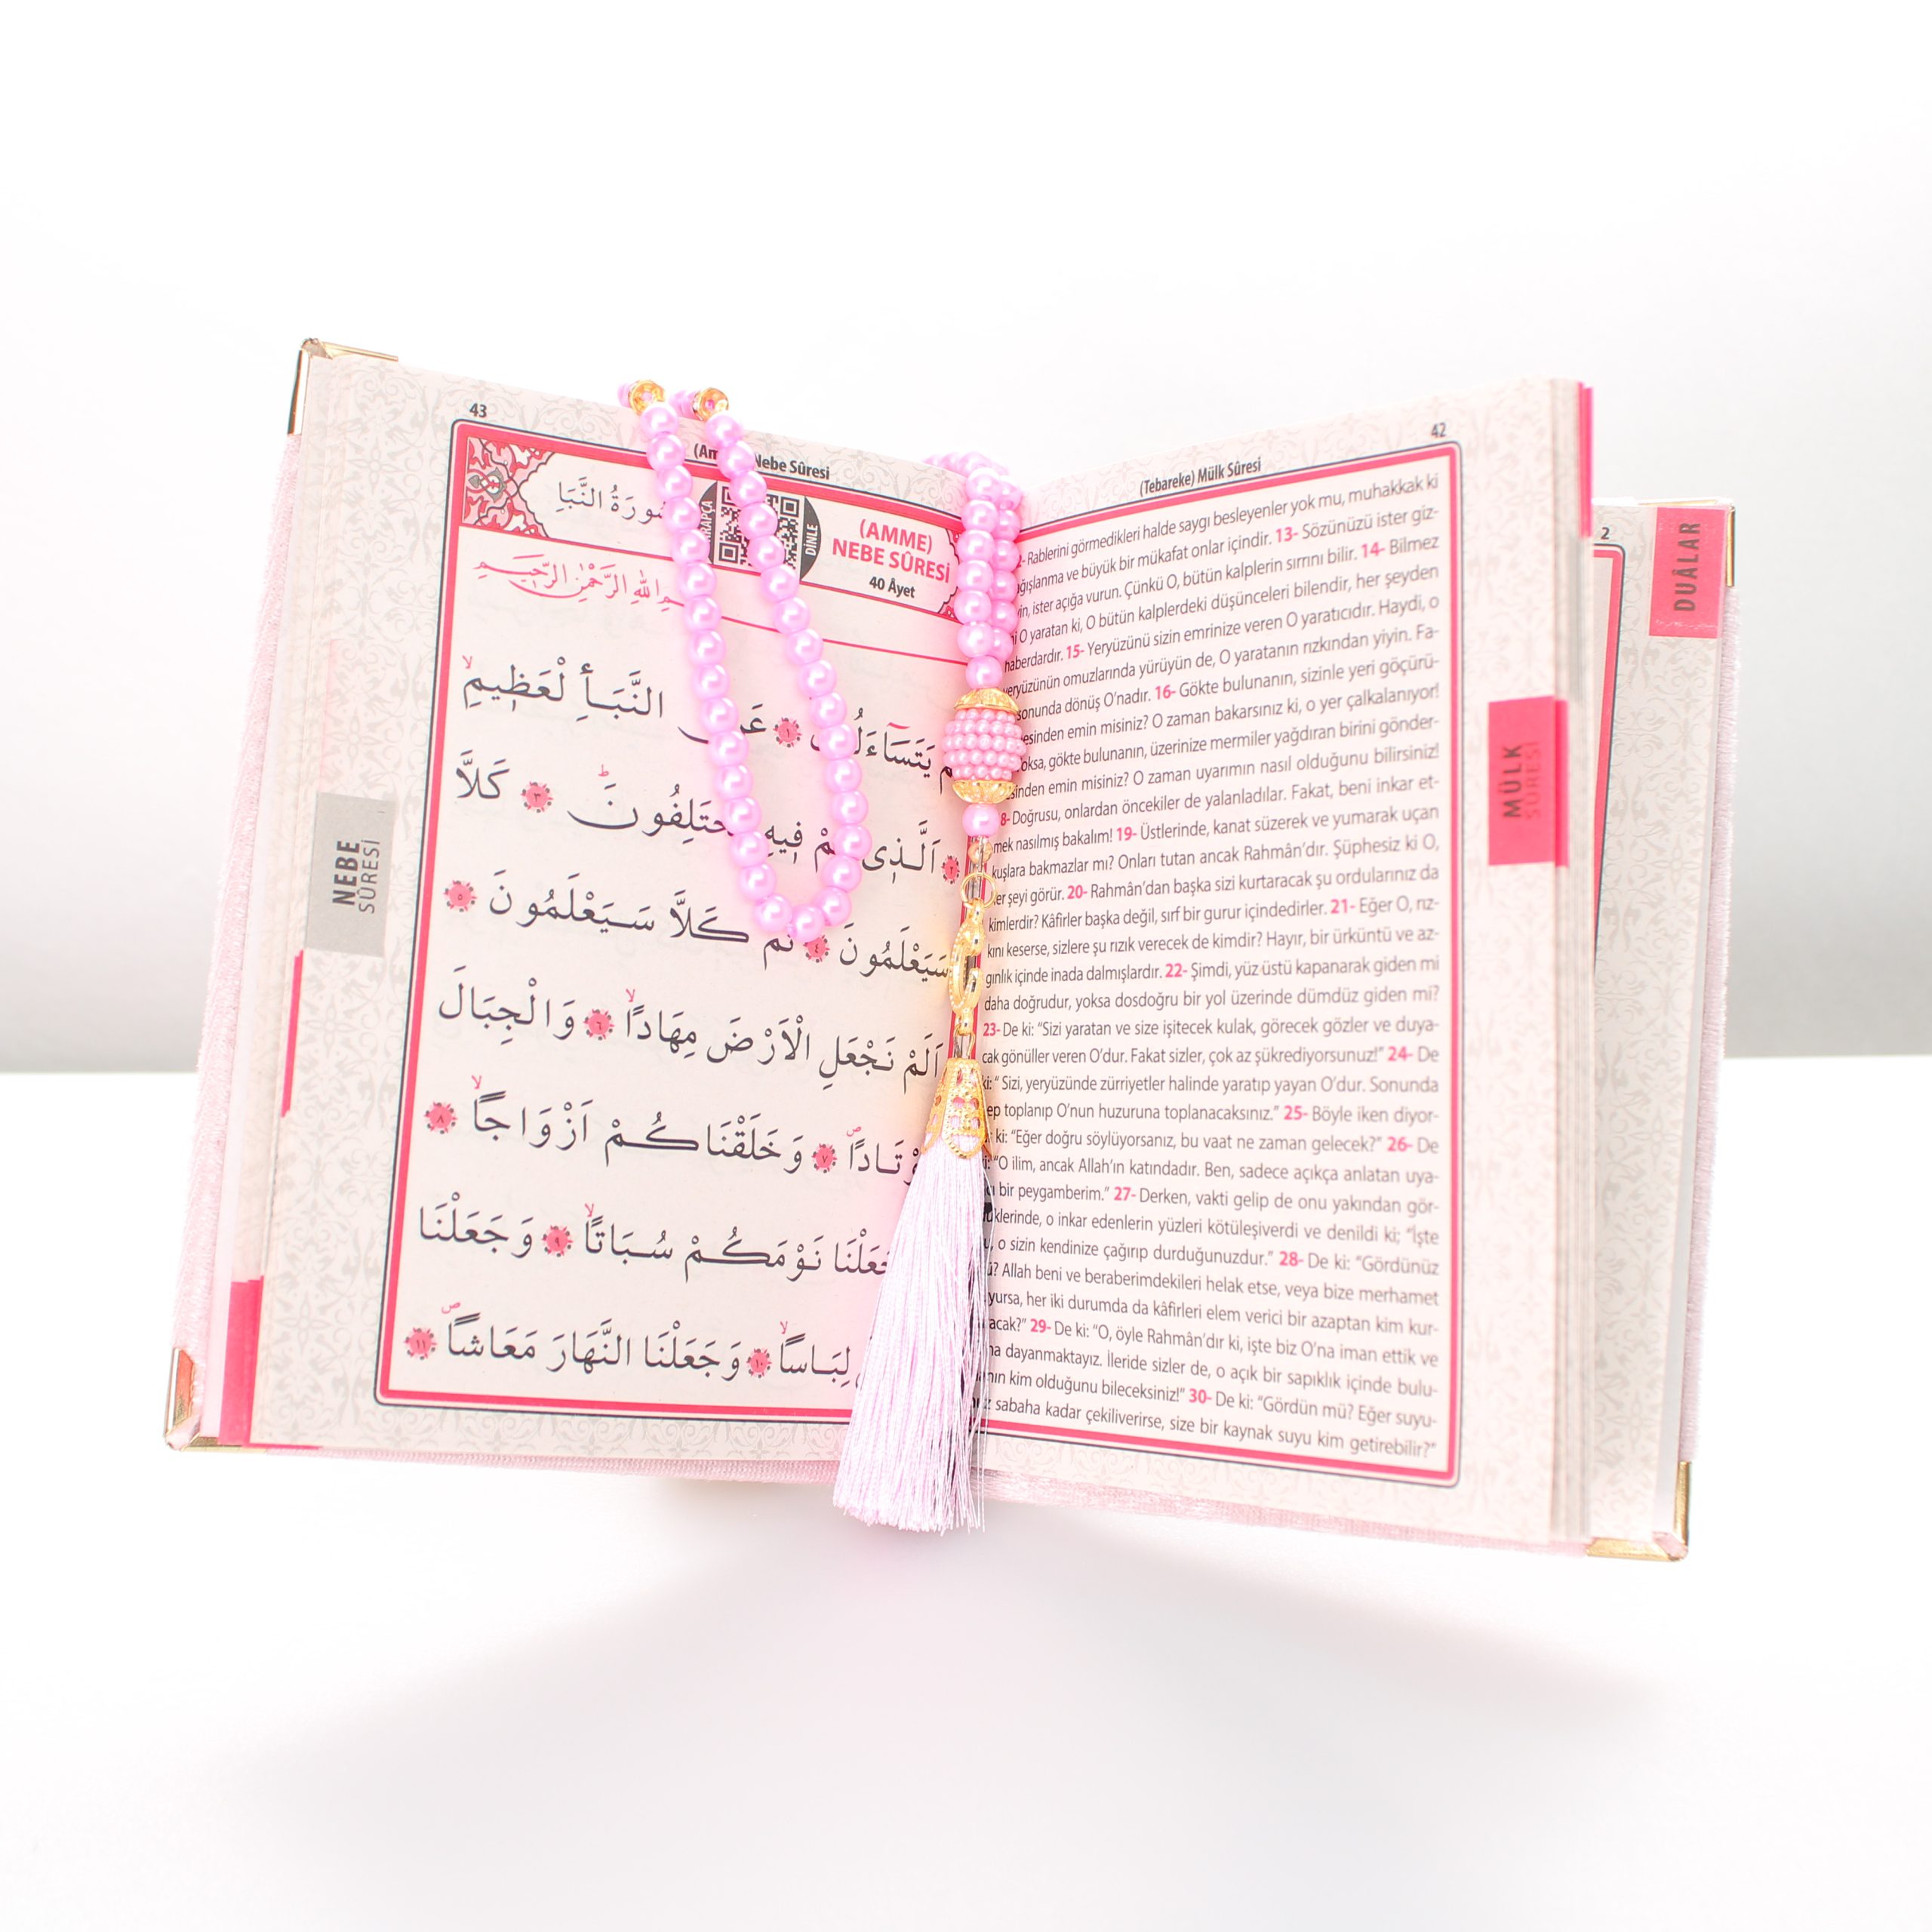 43
(Am Nebe Sûresi
سُورَةُ النَّبَأِ
ARAPÇA
DİNLE
(AMME)
NEBE SÛRESİ
40 Âyet
اللهِ الرَّحْمٰنِ الرَّحِيمِ
يَتَسَٓاءَلُونَ ﴿١﴾ عَنِ النَّبَـأِ لْعَظ۪يمِۙ
﴿٢﴾ اَلَّذ۪ي هُمْ ف۪يهِ مُخْتَلِفُونَۜ ﴿٣﴾ كَلَّا
سَيَعْلَمُونَ ﴿٤﴾ ثُمَّ كَلَّا سَيَعْلَمُونَ ﴿٥﴾
اَلَمْ نَجْعَلِ الْاَرْضَ مِهَاداًۙ ﴿٦﴾ وَالْجِبَالَ
اَوْتَاداًۖ ﴿٧﴾ وَخَلَقْنَاكُمْ اَزْوَاجاًۙ ﴿٨﴾
وَجَعَلْنَا نَوْمَكُمْ سُبَاتاًۙ ﴿٩﴾ وَجَعَلْنَا
لِبَاساًۙ ﴿١٠﴾ وَجَعَلْنَا النَّهَارَ مَعَاشاًۖ ﴿١١﴾
NEBE
SÛRESİ
42
(Tebareke) Mülk Sûresi
Rablerini görmedikleri halde saygı besleyenler yok mu, muhakkak ki
ğışlanma ve büyük bir mükafat onlar içindir. 13- Sözünüzü ister giz-
yin, ister açığa vurun. Çünkü O, bütün kalplerin sırrını bilir. 14- Bilmez
O yaratan ki, O bütün kalplerdeki düşünceleri bilendir, her şeyden
haberdardır. 15- Yeryüzünü sizin emrinize veren O yaratıcıdır. Haydi, o
yeryüzünün omuzlarında yürüyün de, O yaratanın rızkından yiyin. Fa-
sonunda dönüş O'nadır. 16- Gökte bulunanın, sizinle yeri göçürü-
esinden emin misiniz? O zaman bakarsınız ki, o yer çalkalanıyor!
oksa, gökte bulunanın, üzerinize mermiler yağdıran birini gönder-
sinden emin misiniz? O zaman uyarımın nasıl olduğunu bilirsiniz!
8- Doğrusu, onlardan öncekiler de yalanladılar. Fakat, beni inkar et-
mek nasılmış bakalım! 19- Üstlerinde, kanat süzerek ve yumarak uçan
kuşlara bakmazlar mı? Onları tutan ancak Rahmân'dır. Şüphesiz ki O,
er şeyi görür. 20- Rahmân'dan başka sizi kurtaracak şu ordularınız da
kimlerdir? Kâfirler başka değil, sırf bir gurur içindedirler. 21- Eğer O, rız-
kını keserse, sizlere şu rızık verecek de kimdir? Hayır, bir ürküntü ve az-
gınlık içinde inada dalmışlardır. 22- Şimdi, yüz üstü kapanarak giden mi
daha doğrudur, yoksa dosdoğru bir yol üzerinde dümdüz giden mi?
23- De ki: “Sizi yaratan ve size işitecek kulak, görecek gözler ve duya-
cak gönüller veren O'dur. Fakat sizler, çok az şükrediyorsunuz!” 24- De
ki: “ Sizi, yeryüzünde zürriyetler halinde yaratıp yayan O'dur. Sonunda
ep toplanıp O'nun huzuruna toplanacaksınız.” 25- Böyle iken diyor-
ki: “Eğer doğru söylüyorsanız, bu vaat ne zaman gelecek?” 26- De
“O ilim, ancak Allah'ın katındadır. Ben, sadece açıkça anlatan uya-
bir peygamberim.” 27- Derken, vakti gelip de onu yakından gör-
klerinde, o inkar edenlerin yüzleri kötüleşiverdi ve denildi ki; “İşte
o sizin kendinize çağırıp durduğunuzdur.” 28- De ki: “Gördünüz
? Allah beni ve beraberimdekileri helak etse, veya bize merhamet
yursa, her iki durumda da kâfirleri elem verici bir azaptan kim kur-
acak?” 29- De ki: “O, öyle Rahmân'dır ki, işte biz O'na iman ettik ve
na dayanmaktayız. İleride sizler de, o açık bir sapıklık içinde bulu-
nın kim olduğunu bileceksiniz!” 30- De ki: “Gördün mü? Eğer suyu-
sabaha kadar çekiliverirse, size bir kaynak suyu kim getirebilir?”
MÜLK
SÛRESİ
2
DUÂLAR